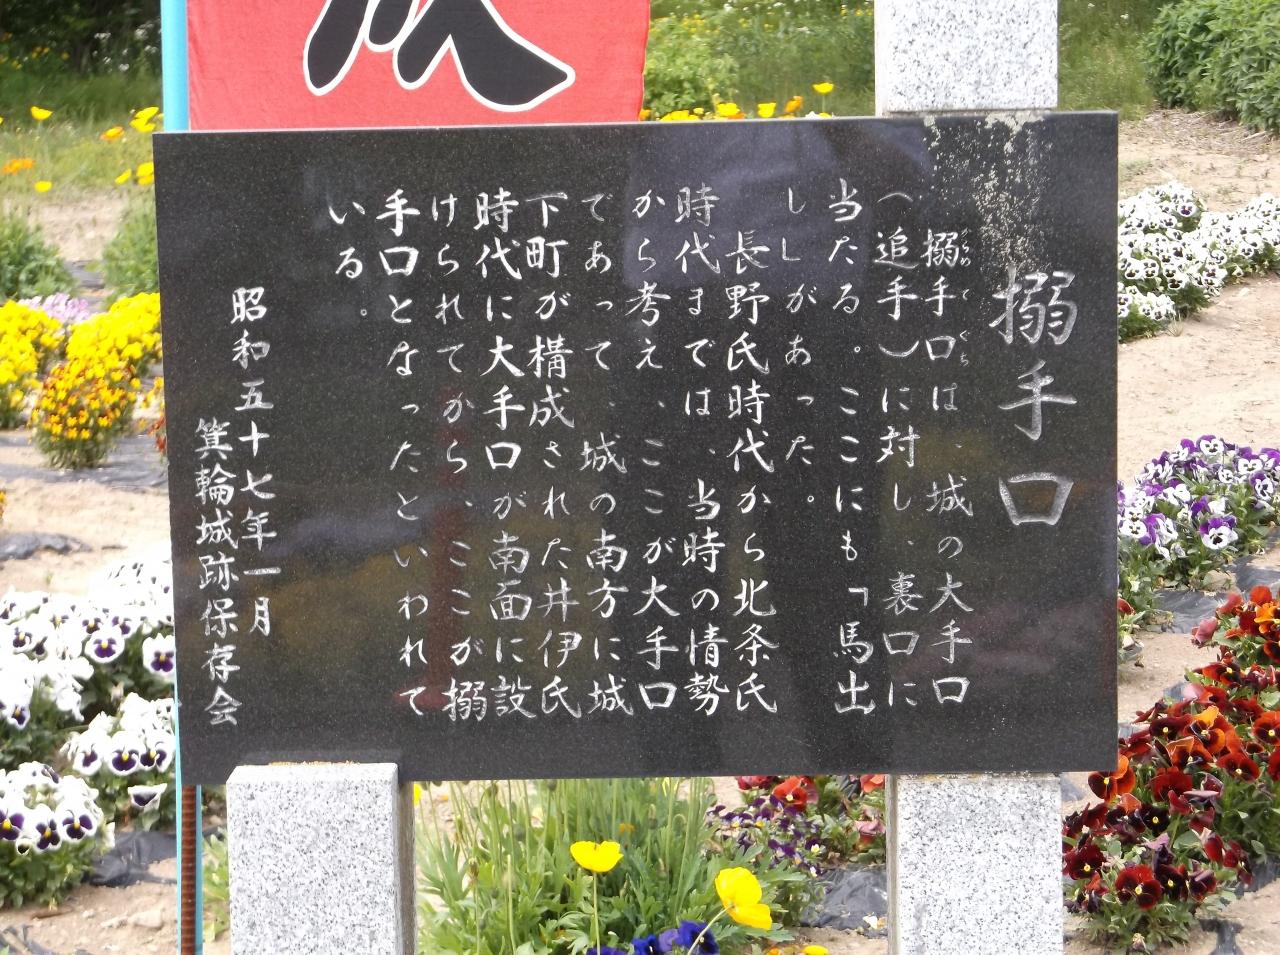 搦手口
搦手口は、城の大手口
からめ て ぐち
（追手）に対し、裏口に
当たる。ここにも「馬出
し」があった。
長野氏時代から北条氏
時代までは、当時の情勢
から考え、ここが大手口
であって、城の南方に城
下町が構成された井伊氏
時代に大手口が南面に設
けられてから、ここが搦
手口となったといわれて
いる。
昭和五十七年一月
箕輪城跡保存会